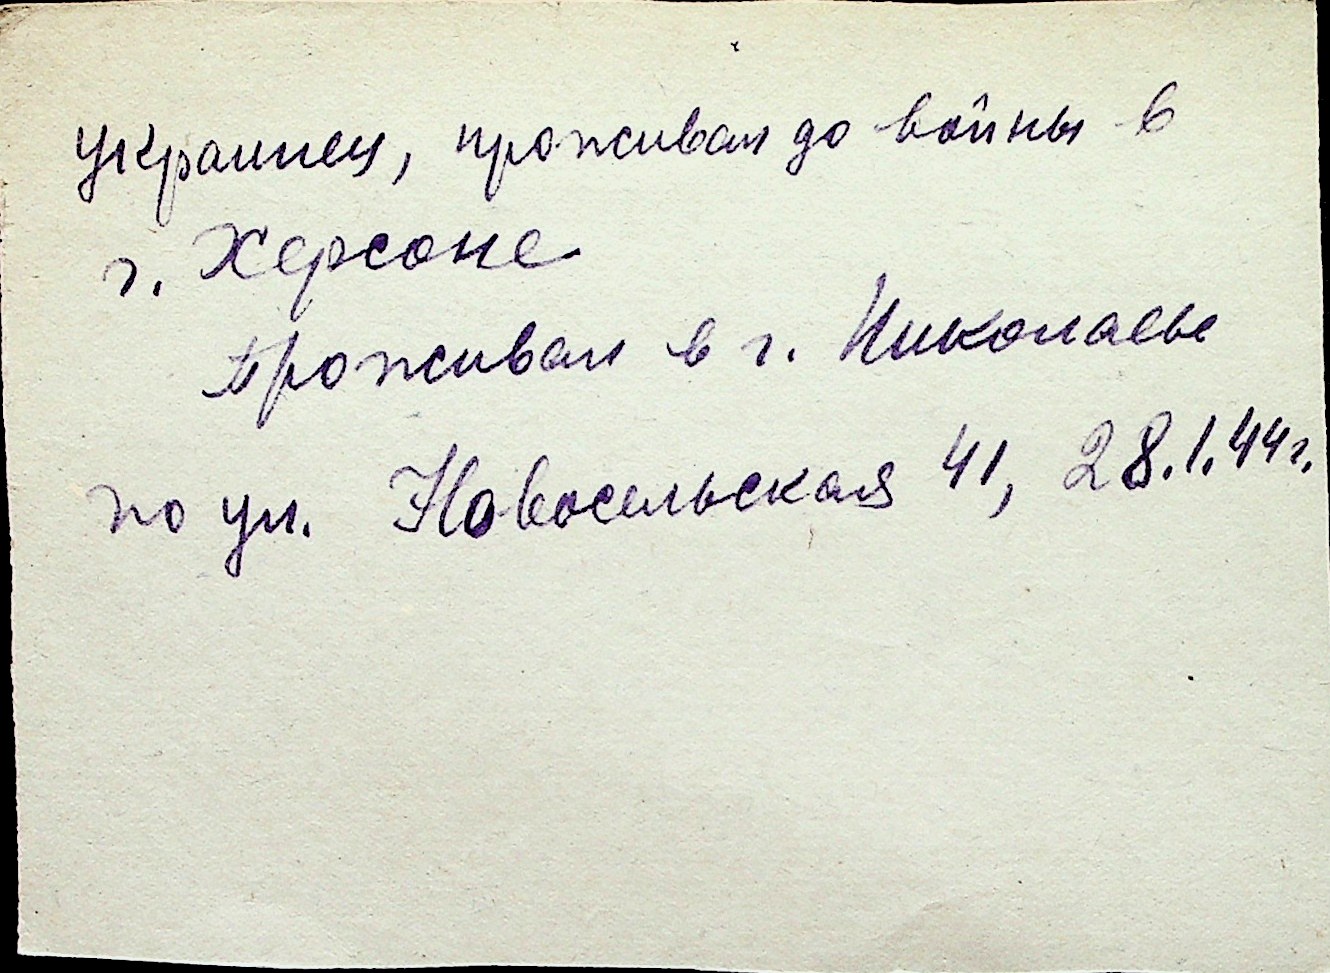 украинец, проживал до войны в
г. Херсоне
Проживал в г. Николаеве
по ул. Новосельская 41, 28.1.44г.